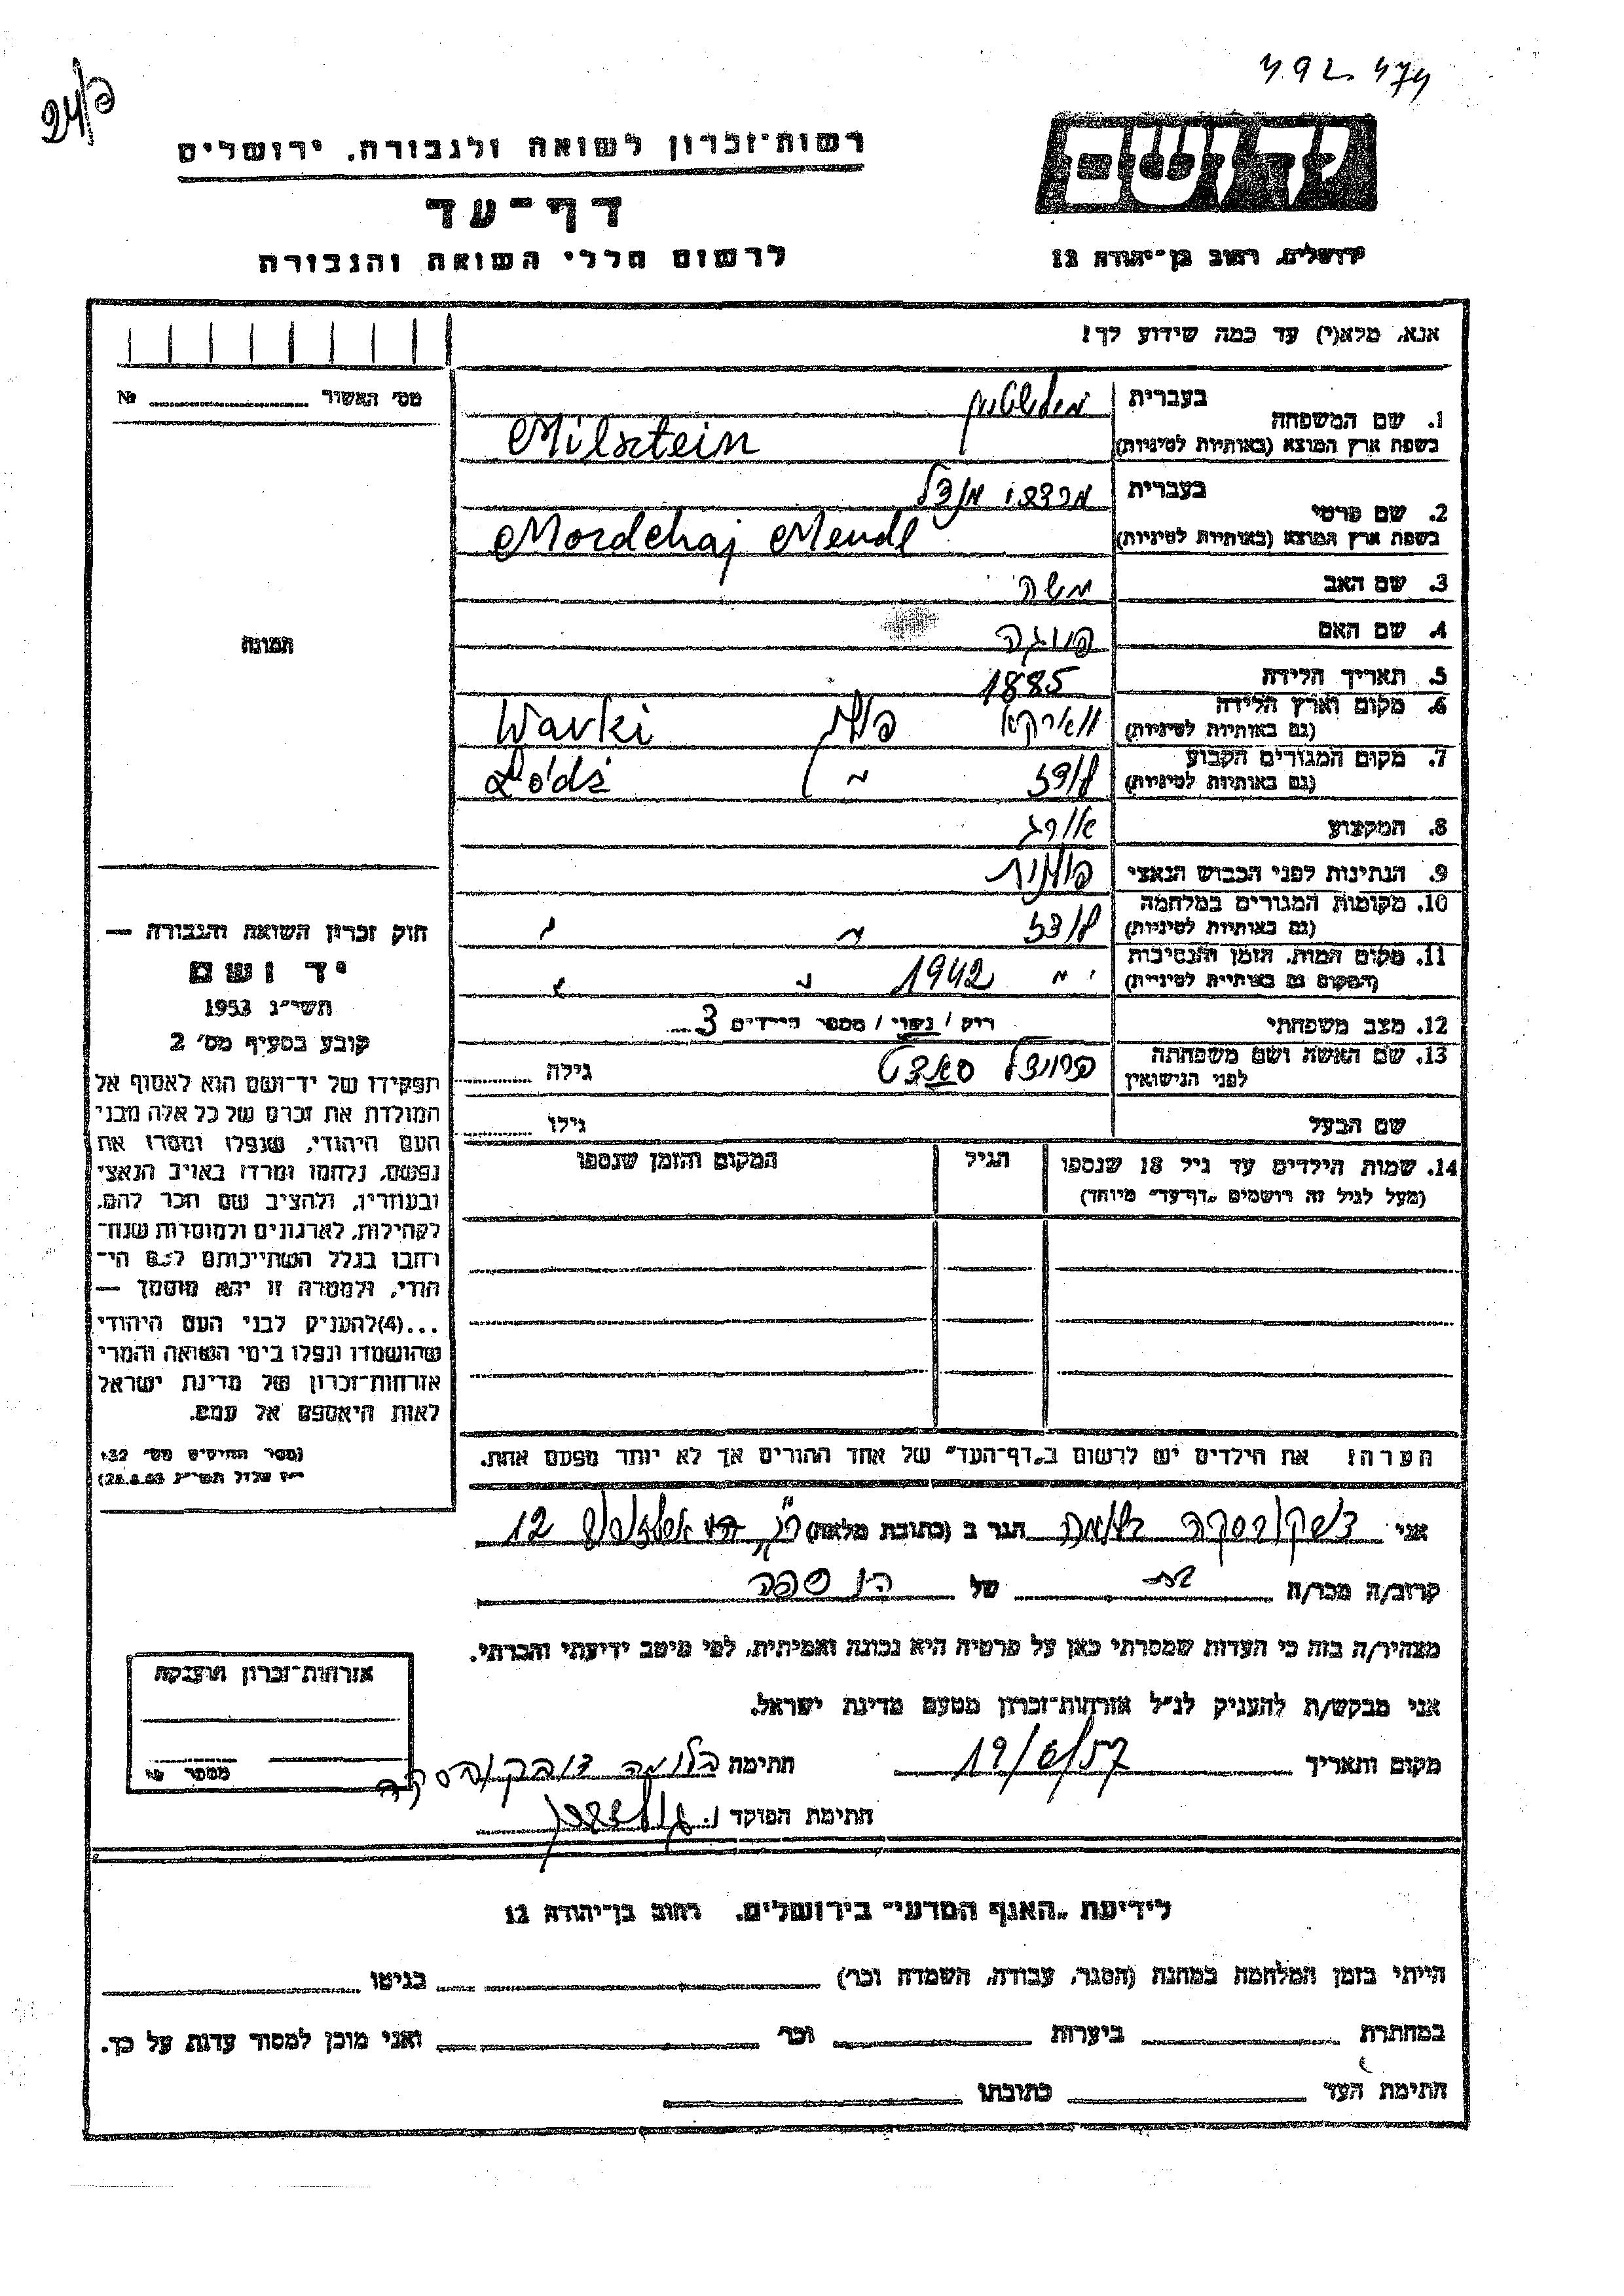 492.474
24/פ
יד ושם
רשות־זכרון לשואה ולגבורה, ירושלים
דף־עד
לרשום חללי השואה והגבורה
ירושלים, רחוב בן־יהודה 12
אנא, מלא(י) עד כמה שידוע לך!
מס׳ האשור № 
1. שם המשפחה בעברית מילשטיין
בשפת ארץ המוצא (באותיות לטיניות) Milsztein
2. שם פרטי בעברית מרדכי מנדל
בשפת ארץ המוצא (באותיות לטיניות) Mordchaj Mendl
3. שם האב משה
4. שם האם
תמונה
5. תאריך הלידה 1885
6. מקום וארץ הלידה (גם באותיות לטיניות) ווארקא פולין Warki
7. מקום המגורים הקבוע (גם באותיות לטיניות) לודז " Lódź
8. המקצוע אורג
9. הנתינות לפני הכבוש הנאצי פולנית
10. מקומות המגורים במלחמה (גם באותיות לטיניות) לודז " "
11. מקום המות, הזמן והנסיבות (המקום גם באותיות לטיניות) " " 1942 " "
12. מצב משפחתי רוק / נשוי / מספר הילדים 3
13. שם האשה ושם משפחתה לפני הנישואין גילה
שם הבעל גילו
14. שמות הילדים עד גיל 18 שנספו (מעל לגיל זה רושמים „דף־עד״ מיוחד) הגיל המקום והזמן שנספו
חוק זכרון השואה והגבורה —
יד ושם
תשי״ג 1953
קובע בסעיף מס׳ 2
תפקידו של יד־ושם הוא לאסוף אל
המולדת את זכרם של כל אלה מבני
העם היהודי, שנפלו ומסרו את
נפשם, נלחמו ומרדו באויב הנאצי
ובעוזריו, ולהציב שם וזכר להם,
לקהילות, לארגונים ולמוסדות שנח־
רבו בגלל השתייכותם לעם הי־
הודי, ולמטרה זו יהא מוסמך —
...(4)להעניק לבני העם היהודי
שהושמדו ונפלו בימי השואה והמרי
אזרחות־זכרון של מדינת ישראל
לאות היאספם אל עמם.
(ספר החוקים מס׳ 132
הערה! את הילדים יש לרשום ב„דף־העד״ של אחד ההורים אך לא יותר מפעם אחת.
אני בלומה הגר ב (כתובת מלאה) 12
קרוב/ה מכר/ה בת של הנספה
מצהיר/ה בזה כי העדות שמסרתי כאן על פרטיה היא נכונה ואמיתית, לפי מיטב ידיעתי והכרתי.
אני מבקש/ת להעניק לנ״ל אזרחות־זכרון מטעם מדינת ישראל.
מקום ותאריך 19/6/57 חתימה בלומה
חתימת הפוקד
אזרחות־זכרון הוענקה
לידיעת „האגף המדעי״ בירושלים, רחוב בן־יהודה 12
הייתי בזמן המלחמה במחנה (הסגר, עבודה, השמדה וכר׳) בגיטו
במחתרת ביערות וכר׳ ואני מוכן למסור עדות על כך.
חתימת העד כתובתו